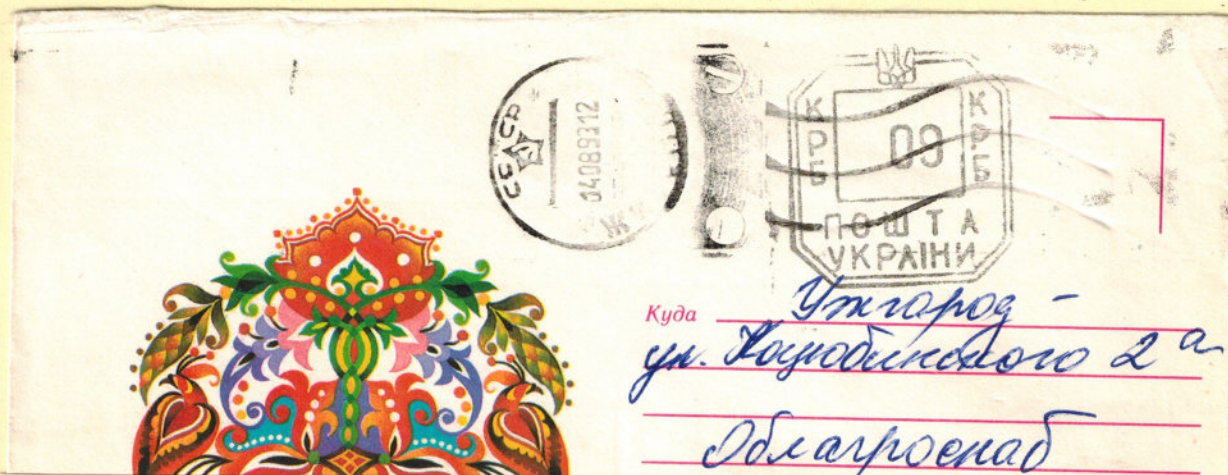 СССР
04089312
КРБ 09 КРБ
ПОШТА
УКРАЇНИ
Куда Ужгород -
ул. Коцюбинского 2а
Облагроснаб